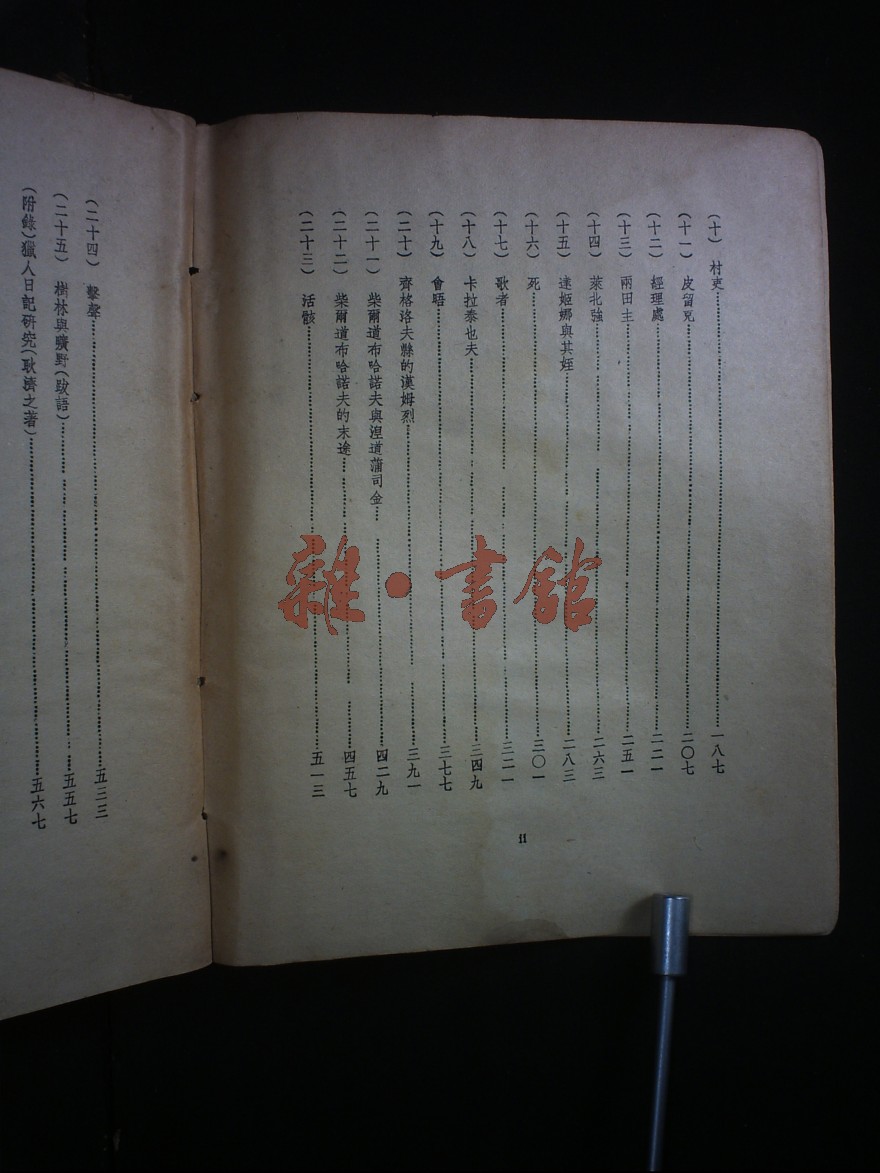 (十) 村吏……一八七
(十一) 皮留克……二〇七
(十二) 經理處……二二一
(十三) 兩田主……二五一
(十四) 萊北強……二六三
(十五) 達姬娜與其姪……二八三
(十六) 死……三〇一
(十七) 歌者……三二一
(十八) 卡拉泰也夫……三四九
(十九) 會晤……三七七
(二十) 齊格洛夫縣的漢姆烈……三九一
(二十一) 柴爾道布哈諾夫與涅道蒲司金……四二九
(二十二) 柴爾道布哈諾夫的末途……四五七
(二十三) 活骸……五一三
ii
(二十四) 擊聲……五三三
(二十五) 樹林與曠野(跋語)……五五七
(附錄)獵人日記研究(耿濟之著)……五六七
雜·書館